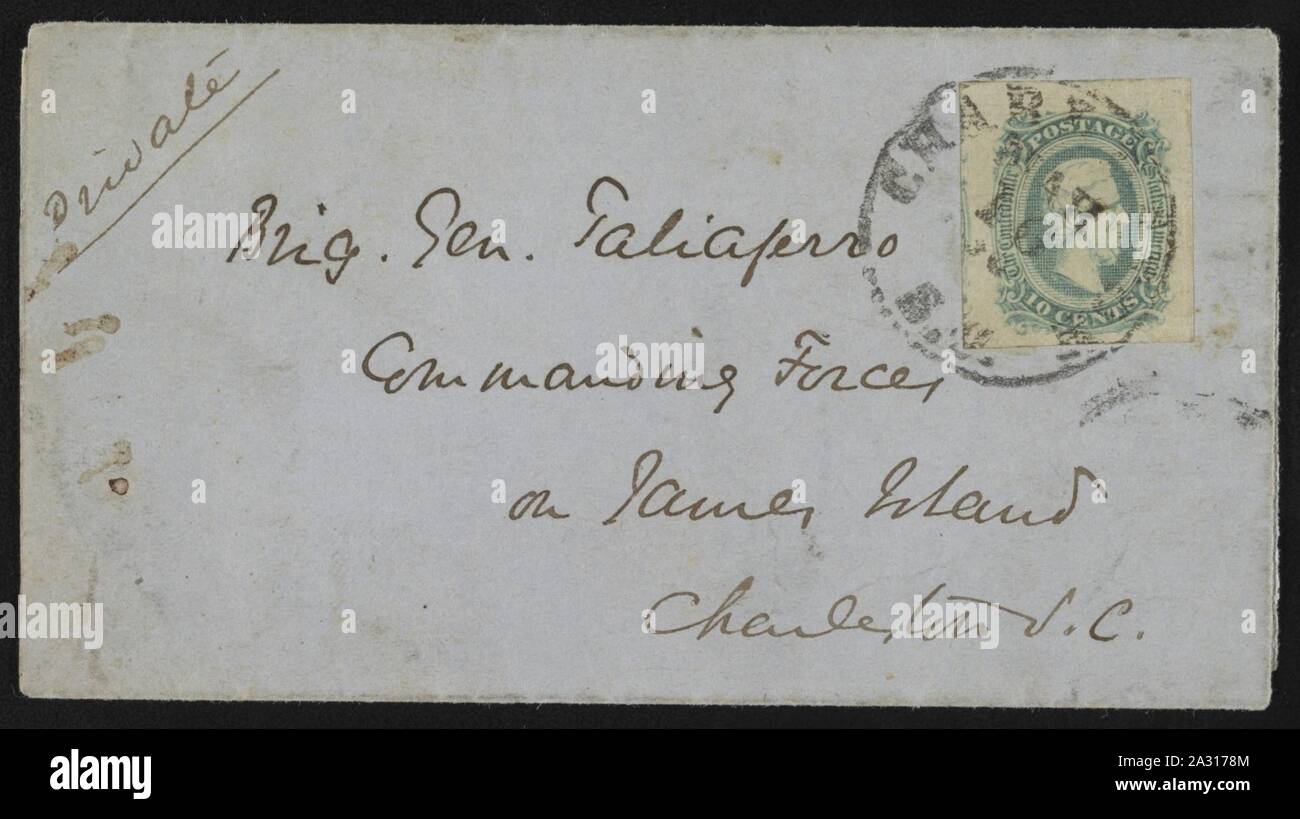 Private
Brig. Gen. Taliaferro
Commanding Forces
on James Island
Charleston S.C.
POSTAGE
The Confederate States of America
10 CENTS
alamy
Image ID: 2A3178M
www.alamy.com